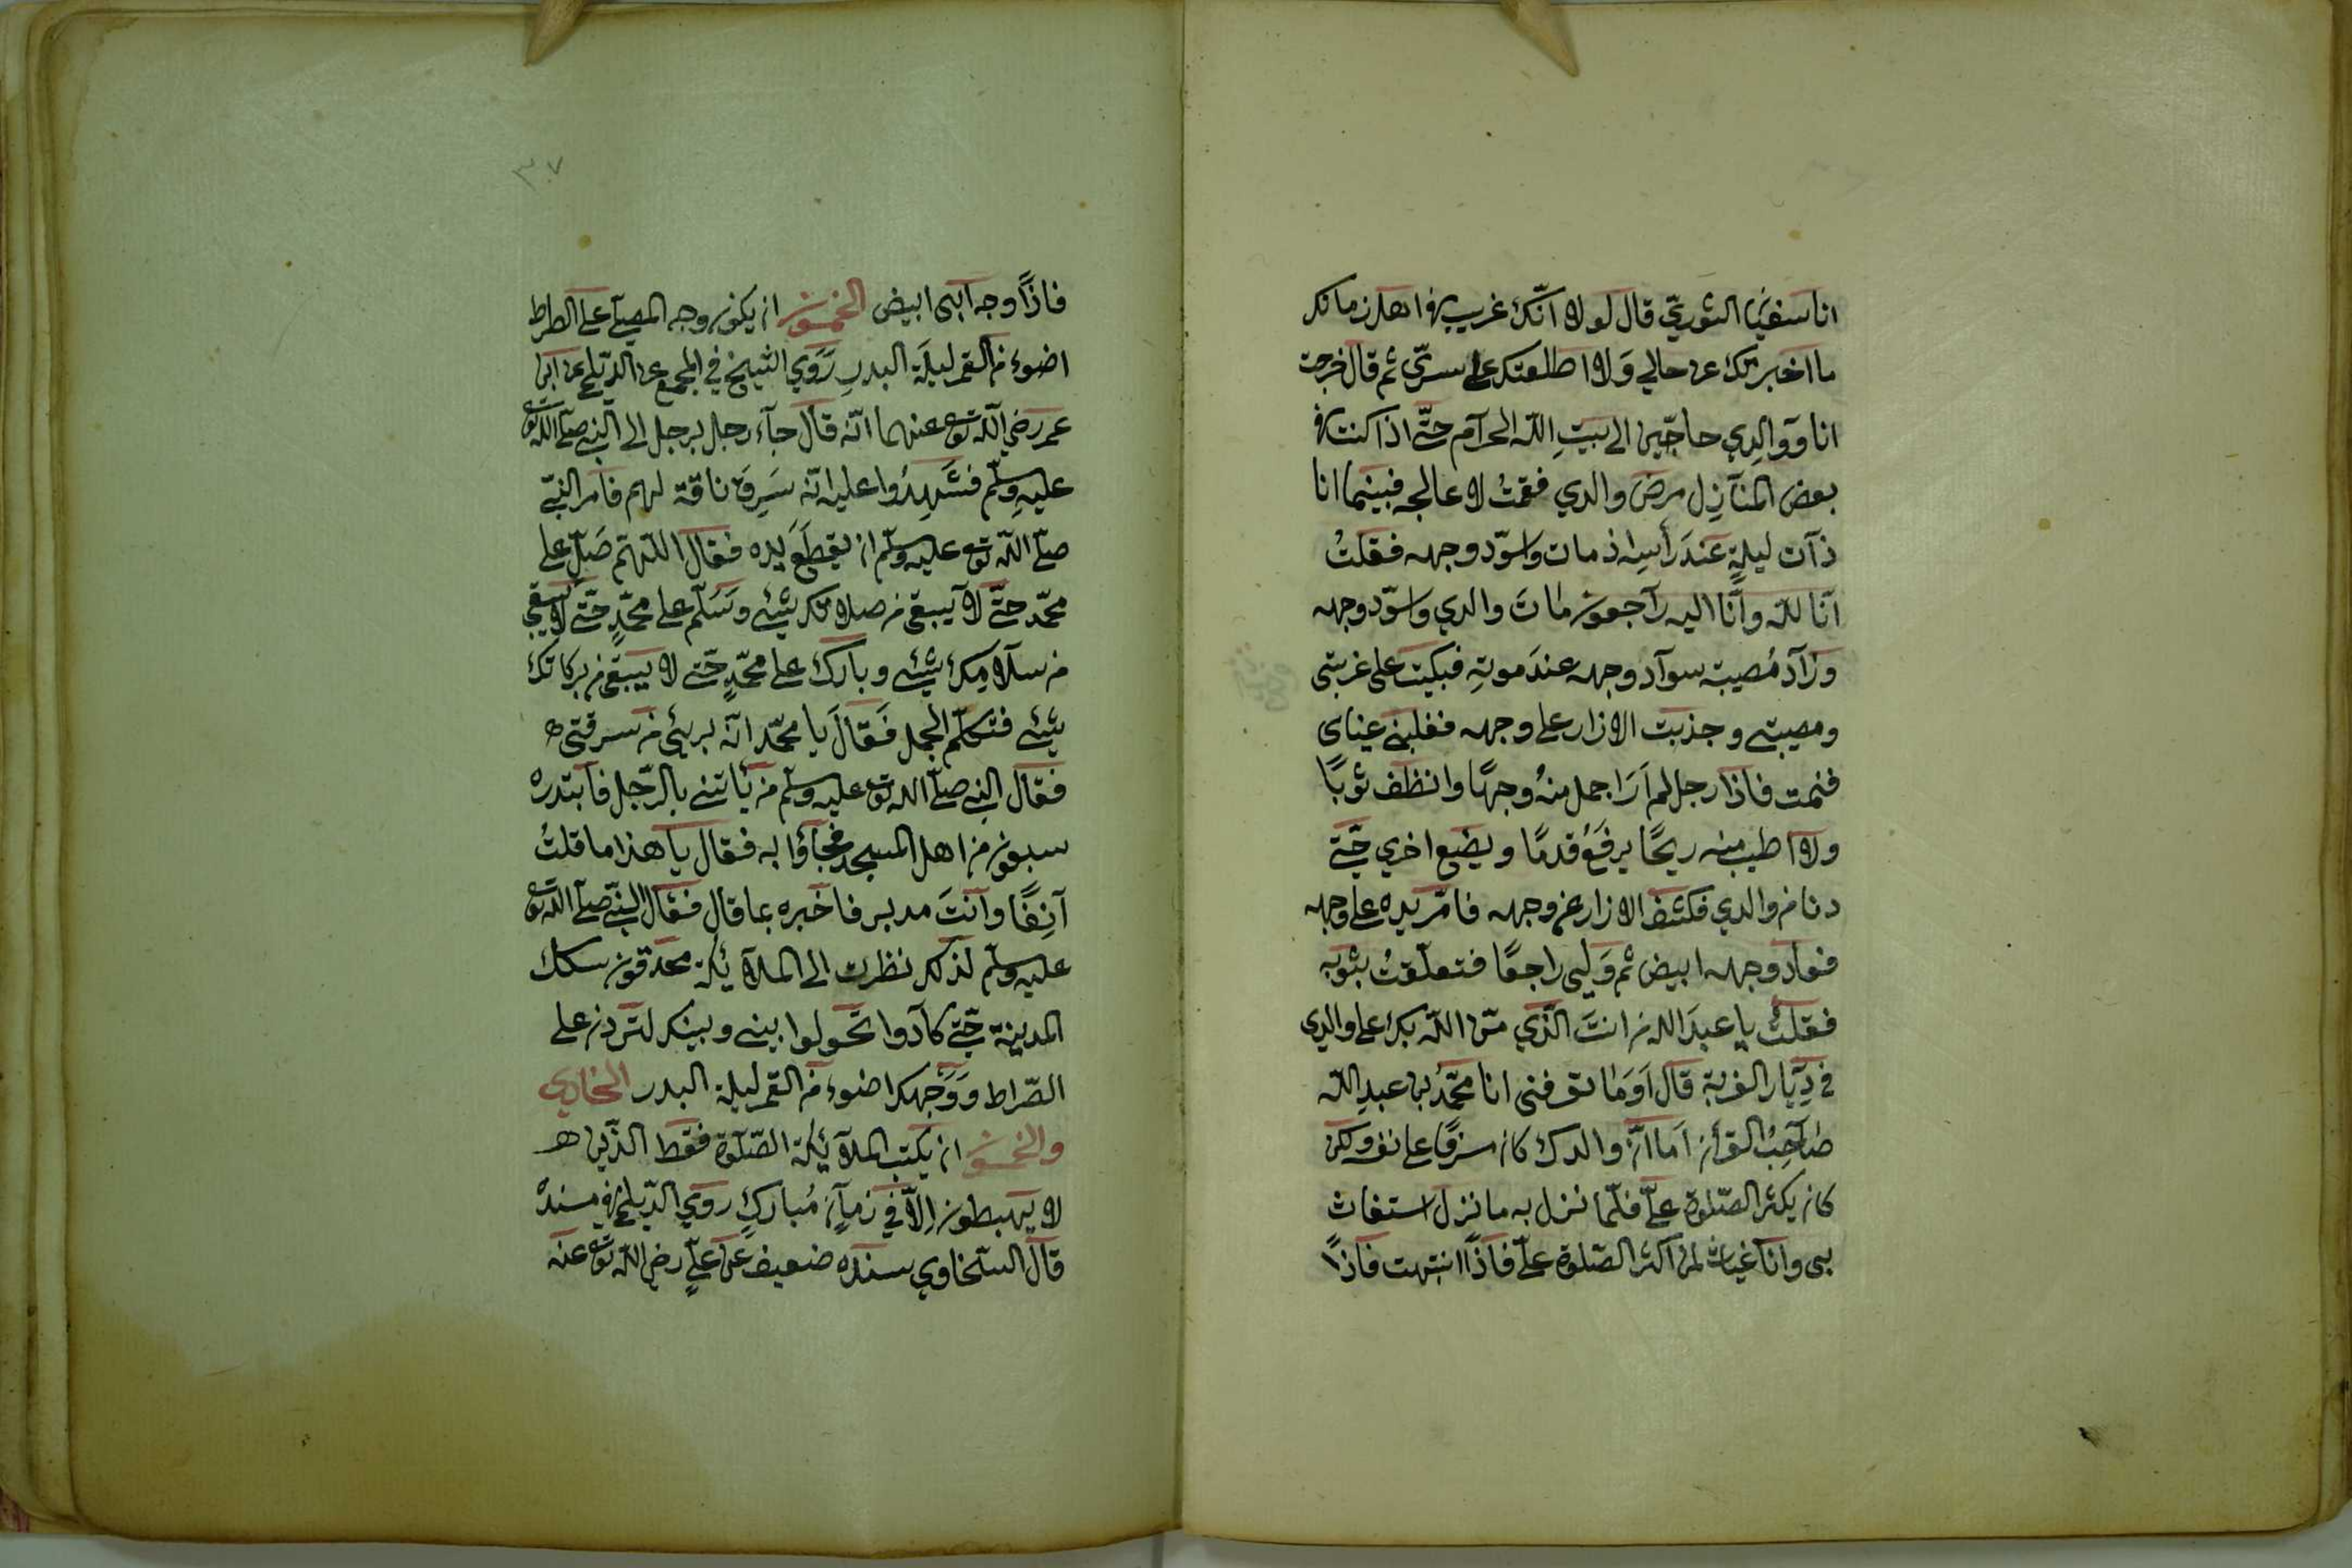 انا سفيٰن الثوريّ قال لولا انّك غريب في اهل زمانك
ما اخبرتك عن حالي وَلا اطلعتك على سرّي ثم قال خرجت
انا وَوالِدي حاجّين الى بيتِ اللّه الحرآم حتّى اذا كنت في
بعض المنآزِل مرض والدي فقمتُ لاعالجه فبينما انا
ذآت ليلةٍ عندَ رأسِه اذ مات واسوّد وجهه فقلتُ
آنا للّه وانّا اليه رآجعون مات والدي واسوّد وجهه
وزآد مُصيبة سوآد وجهه عندَ موتِهِ فبكيت على غربتي
ومصيبتي وجذبت الازار على وجهه فغلبني عيناى
فنمت فاذا رجل لم اَرَ اجمل منهُ وجهًا وانظف ثوبًا
ولا اطيب منه ريحًا يرفَعُ قدمًا ويضع اخري حتّى
دنا من والدي فكشف الازار عن وجهه فامّر يده على وجهه
فعاد وجهه ابيض ثم وَلى راجعًا فتعلّقتُ بثوبه
فقلتُ يا عبدَ الله من انتَ الّذي منّ اللّه بك على والدي
في دِيَار الغربة قال اَوَمَا تعرفنى انا محمّدُ بن عبدِ اللّه
صَاحِبُ القرأن اَما انّ والدك كان مسرفًا على نفسه ولكن
كان يكثر الصّلوة علىّ فلّما نزل به ما نزل استغاث
بى وانا غياث لمن اكثر الصّلوة علىّ فاذًا انتبهت فاذًا
٣٧
فاذًا وجه ابى ابيض الخمسون ان يكون وجه المصلّي على الصراط
اضوء من القمر ليلَة البدرِ رَوَي الشيخ في المجمع عن الدّيلمي عن ابن
عمر رضي اللّه تع عنهما انّه قال جآء رجل برجل الى النبي صلّى اللّه تع
عليهِ وسلّم فشَهِدُوا عليه انّه سَرِقَ ناقة لهم فامر النبيّ
صلّى اللّه تع عليه وسلّم ان يقطَعَ يده فقال اللّهمّ صَلّ على
محمّد حتّى لا يبقى من صلاتك شيئ وسَلّم على محمّدٍ حتّى لا يبقي
من سلآمِك شيئ وبارك على محمّدٍ حتّى لا يبقى من بركاتك
شيئ فتكلّم الجمل فَقالَ يا محمّد انّه بريئ من سرقتى
فقال النبي صلّى الله تع عليه وسلّم من يأتيني بالرّجل فابتدره
سبعون من اهل المسجد فجاؤا به فقال يا هذا ما قلتُ
آنِفًا وآنتَ مدبر فاخبره بما قال فقال النبيّ صلّى اللّه تع
عليه وسلّم لذلك نظرت الى الملآئكة محدقون سكك
المدينة حتّى كآدوا تحولوا بيني وبينك لتردن على
الصّراط وَوَجهك اضوء من القمر ليلة البدر الحادي
والخمسون ان يكتب الملآئكة الصّلوة فقط الذّين هم
لا يهبطون اِلّا في زمآنٍ مُباركٍ روي الدّيلمي في مسنده
قال السّخاوي بسنده ضعيف عن عليٍّ رضي اللّه تع عنه